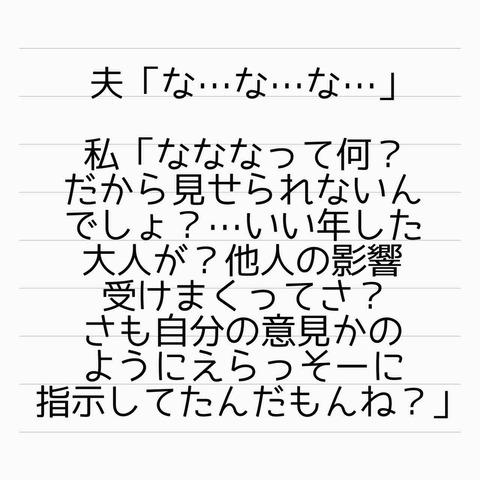 夫「な…な…な…」
私「なななって何？
だから見せられないん
でしょ？…いい年した
大人が？他人の影響
受けまくってさ？
さも自分の意見かの
ようにえらっそーに
指示してたんだもんね？」